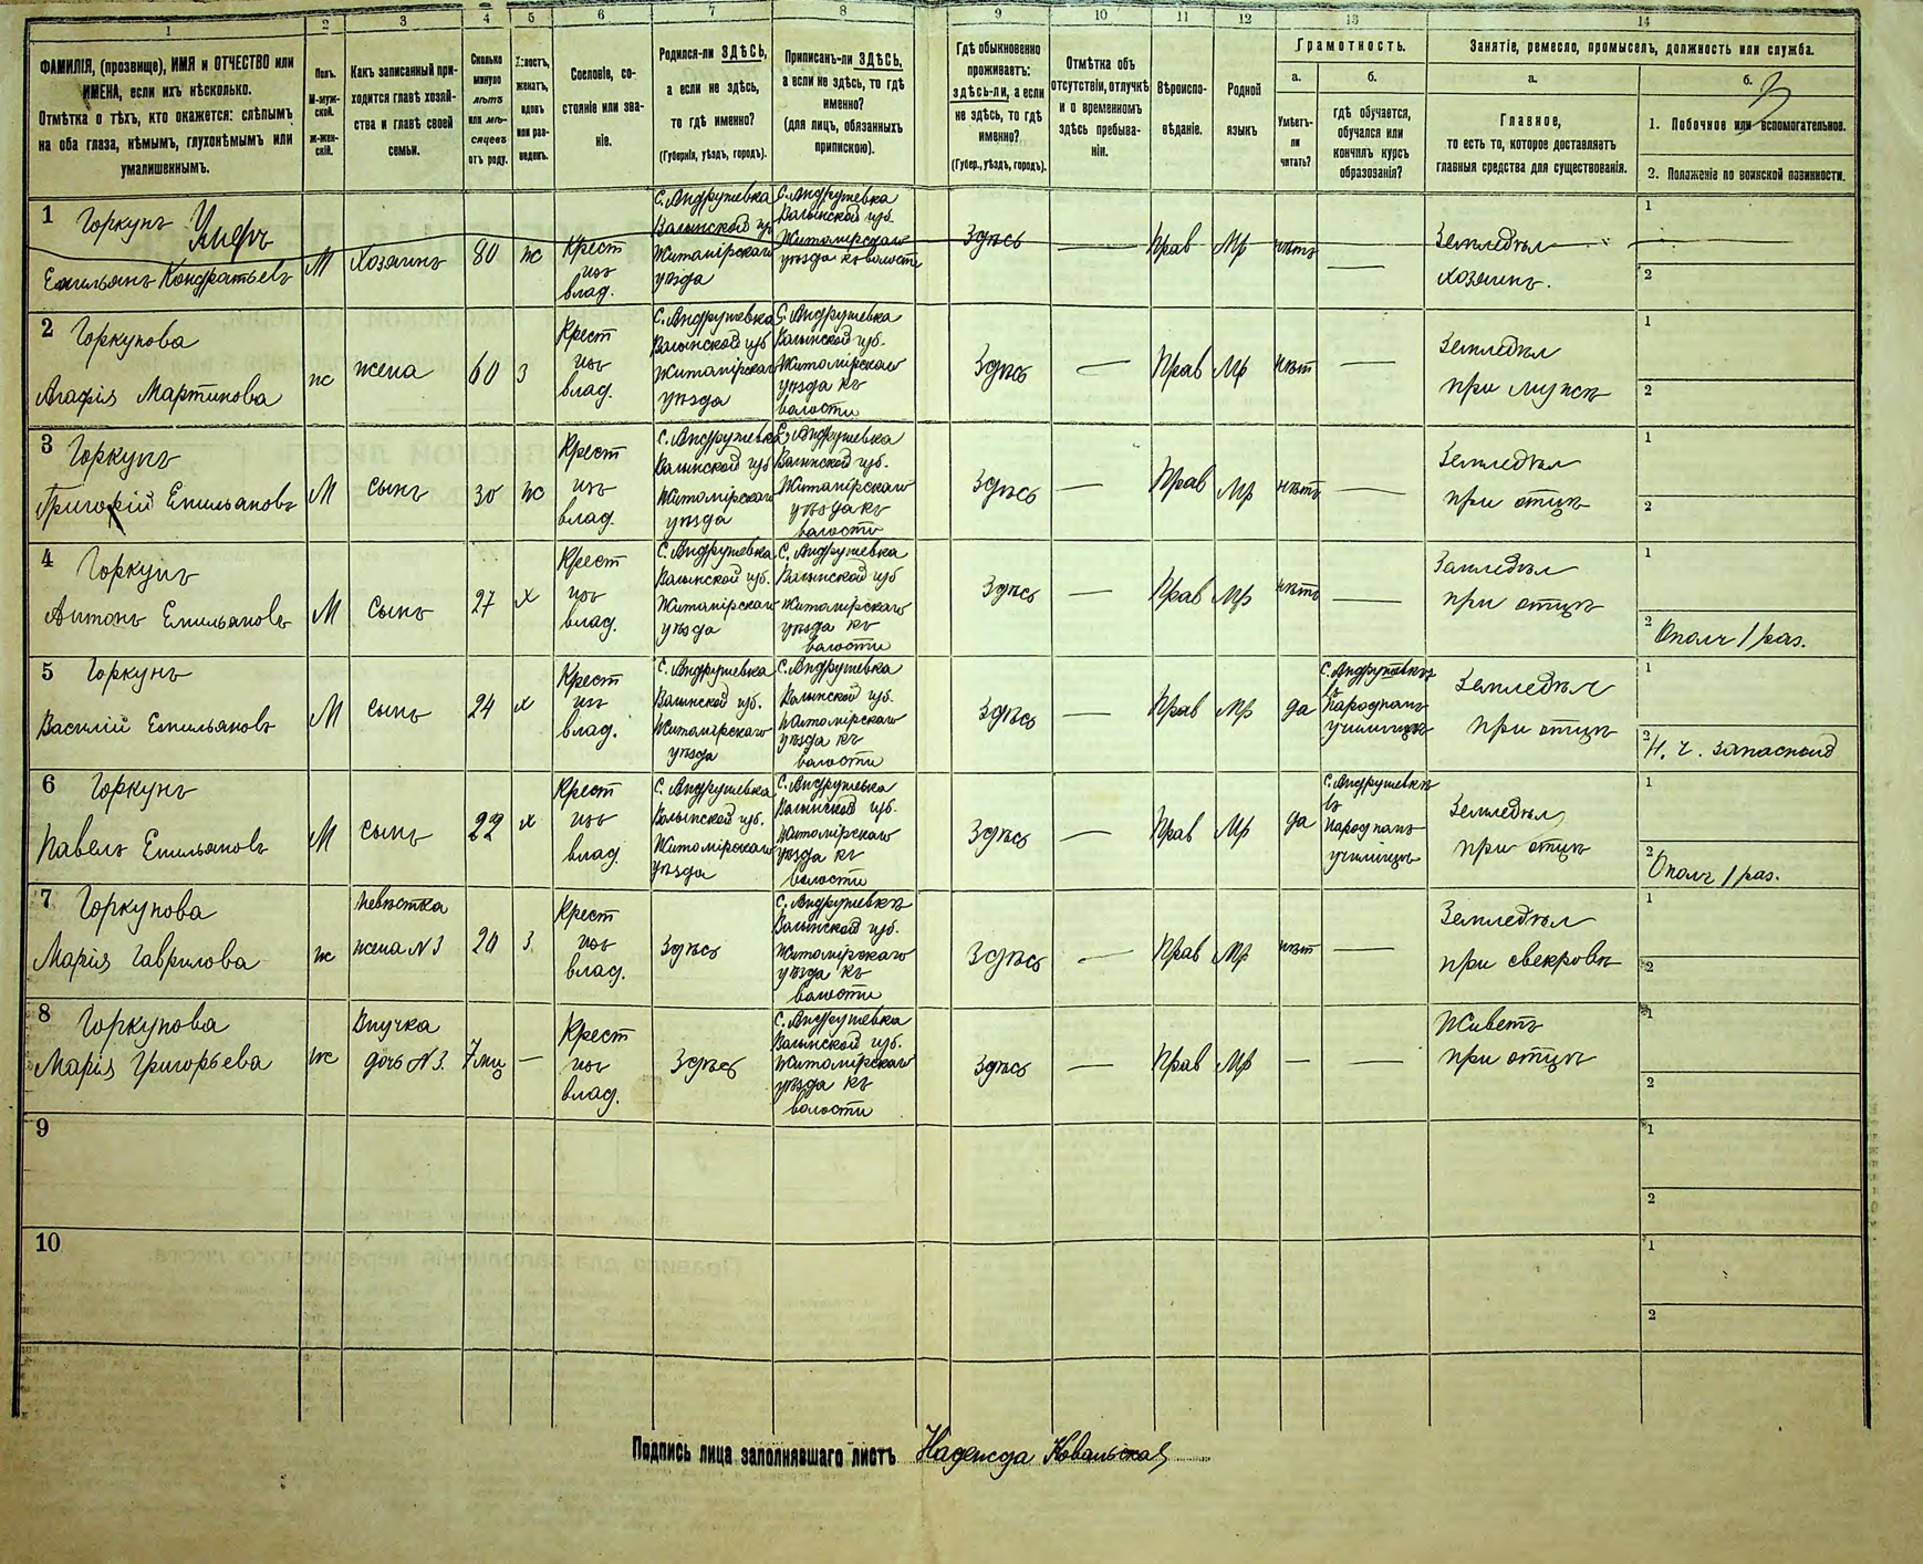 1 2 3 4 5 6 7 8 9 10 11 12 13 14
ФАМИЛІЯ, (прозвище), ИМЯ и ОТЧЕСТВО или
ИМЕНА, если ихъ нѣсколько.
Отмѣтка о тѣхъ, кто окажется: слѣпымъ
на оба глаза, нѣмымъ, глухонѣмымъ или
умалишеннымъ.
Полъ.
М-муж-
ской.
Ж-жен-
скій.
Какъ записанный при-
ходится главѣ хозяй-
ства и главѣ своей
семьи.
Сколько
минуло
лѣтъ
или мѣ-
сяцевъ
отъ роду.
Холостъ,
женатъ,
вдовъ
или раз-
веденъ.
Сословіе, со-
стояніе или зва-
ніе.
Родился-ли ЗДѢСЬ,
а если не здѣсь,
то гдѣ именно?
(Губернія, уѣздъ, городъ).
Приписанъ-ли ЗДѢСЬ,
а если не здѣсь, то гдѣ
именно?
(для лицъ, обязанныхъ
припискою).
Гдѣ обыкновенно
проживаетъ:
здѣсь-ли, а если
не здѣсь, то гдѣ
именно?
(Губер., уѣздъ, городъ).
Отмѣтка объ
отсутствіи, отлучкѣ
и о временномъ
здѣсь пребыва-
ніи.
Вѣроиспо-
вѣданіе.
Родной
языкъ
Грамотность.
а. б.
Умѣетъ-
ли
читать?
гдѣ обучается,
обучался или
кончилъ курсъ
образованія?
Занятіе, ремесло, промыселъ, должность или служба.
а. б.
Главное,
то есть то, которое доставляетъ
главныя средства для существованія.
1. Побочное или вспомогательное.
2. Положеніе по воинской повинности.
1 Горкунъ Умеръ
Емильянъ Кондратьевъ
М
Хозяинъ
80
ж
Крест
изъ
влад.
С. Андрушевка
Волынской губ
Житомірскаго
уѣзда
С. Андрушевка
Волынской губ.
Житомірскаго
уѣзда къ волости
Здѣсь
—
Прав
Мр
нѣтъ
—
Земледѣл
хозяинъ.
1
2
2 Горкунова
Агафія Мартинова
ж
жена
60
З
Крест
изъ
влад.
С. Андрушевка
Волынской губ
Житомірскаго
уѣзда
С. Андрушевка
Волынской губ.
Житомірскаго
уѣзда къ
волости
Здѣсь
—
Прав
Мр
нѣт
—
Земледѣл
при мужѣ
1
2
3 Горкунъ
Григорій Емильановъ
М
сынъ
30
ж
Крест
изъ
влад.
С. Андрушевка
Волынской губ
Житомірскаго
уѣзда
С. Андрушевка
Волынской губ.
Житомірскаго
уѣзда къ
волости
Здѣсь
—
Прав
Мр
нѣтъ
—
Земледѣл
при отцѣ
1
2
4 Горкунъ
Антонъ Емильановъ
М
Сынъ
27
х
Крест
изъ
влад.
С. Андрушевка
Волынской губ.
Житомірскаго
уѣзда
С. Андрушевка
Волынской губ
Житомірскаго
уѣзда къ
волости
Здѣсь
—
Прав
Мр
нѣтъ
—
Земледѣл
при отцѣ
1
2 Ополч 1 раз.
5 Горкунъ
Василій Емильановъ
М
сынъ
24
х
Крест
изъ
влад.
С. Андрушевка
Волынской губ.
Житомірскаго
уѣзда
С. Андрушевка
Волынской губ.
Житомірскаго
уѣзда къ
волости
Здѣсь
—
Прав
Мр
да
С. Андрушевкѣ
въ
народномъ
училищѣ
Земледѣл
при отцѣ
1
2 Н. ч. запасной
6 Горкунъ
Павелъ Емильановъ
М
сынъ
22
х
Крест
изъ
влад.
С. Андрушевка
Волынской губ.
Житомірскаго
уѣзда
С. Андрушевка
Волынской губ.
Житомірскаго
уѣзда къ
волости
Здѣсь
—
Прав
Мр
да
С. Андрушевкѣ
въ
народномъ
училищѣ
Земледѣл
при отцѣ
1
2 Ополч 1 раз.
7 Горкунова
Марія Гаврилова
ж
невѣстка
жена № 3
20
З
Крест
изъ
влад.
Здѣсь
С. Андрушевкѣ
Волынской губ.
Житомірскаго
уѣзда къ
волости
Здѣсь
—
Прав
Мр
нѣт
—
Земледѣл
при свекровѣ
1
2
8 Горкунова
Марія Григорьева
ж
Внучка
дочь № 3.
7 мц
—
Крест
изъ
влад.
Здѣсь
С. Андрушевка
Волынской губ.
Житомірскаго
уѣзда къ
волости
Здѣсь
—
Прав
Мр
—
—
Живетъ
при отцѣ
1
2
9
1
2
10
1
2
Подпись лица заполнявшаго листъ Надежда Ковальская